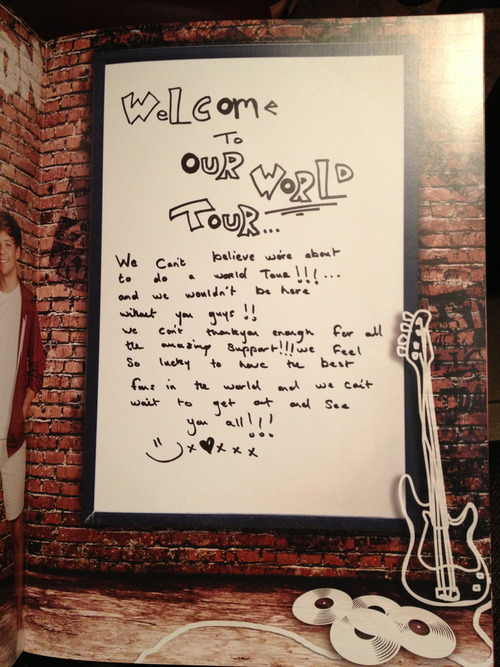 WeLcome
To
OUR WORLD
TOUR...
We Can't believe we're about
to do a world Tour!!!...
and we wouldn't be here
without you guys!!
we can't thankyou enough for all
the amazing support!!! we feel
So lucky to have the best
fans in the world and we can't
wait to get out and see
you all!!!
x ♥ x x x